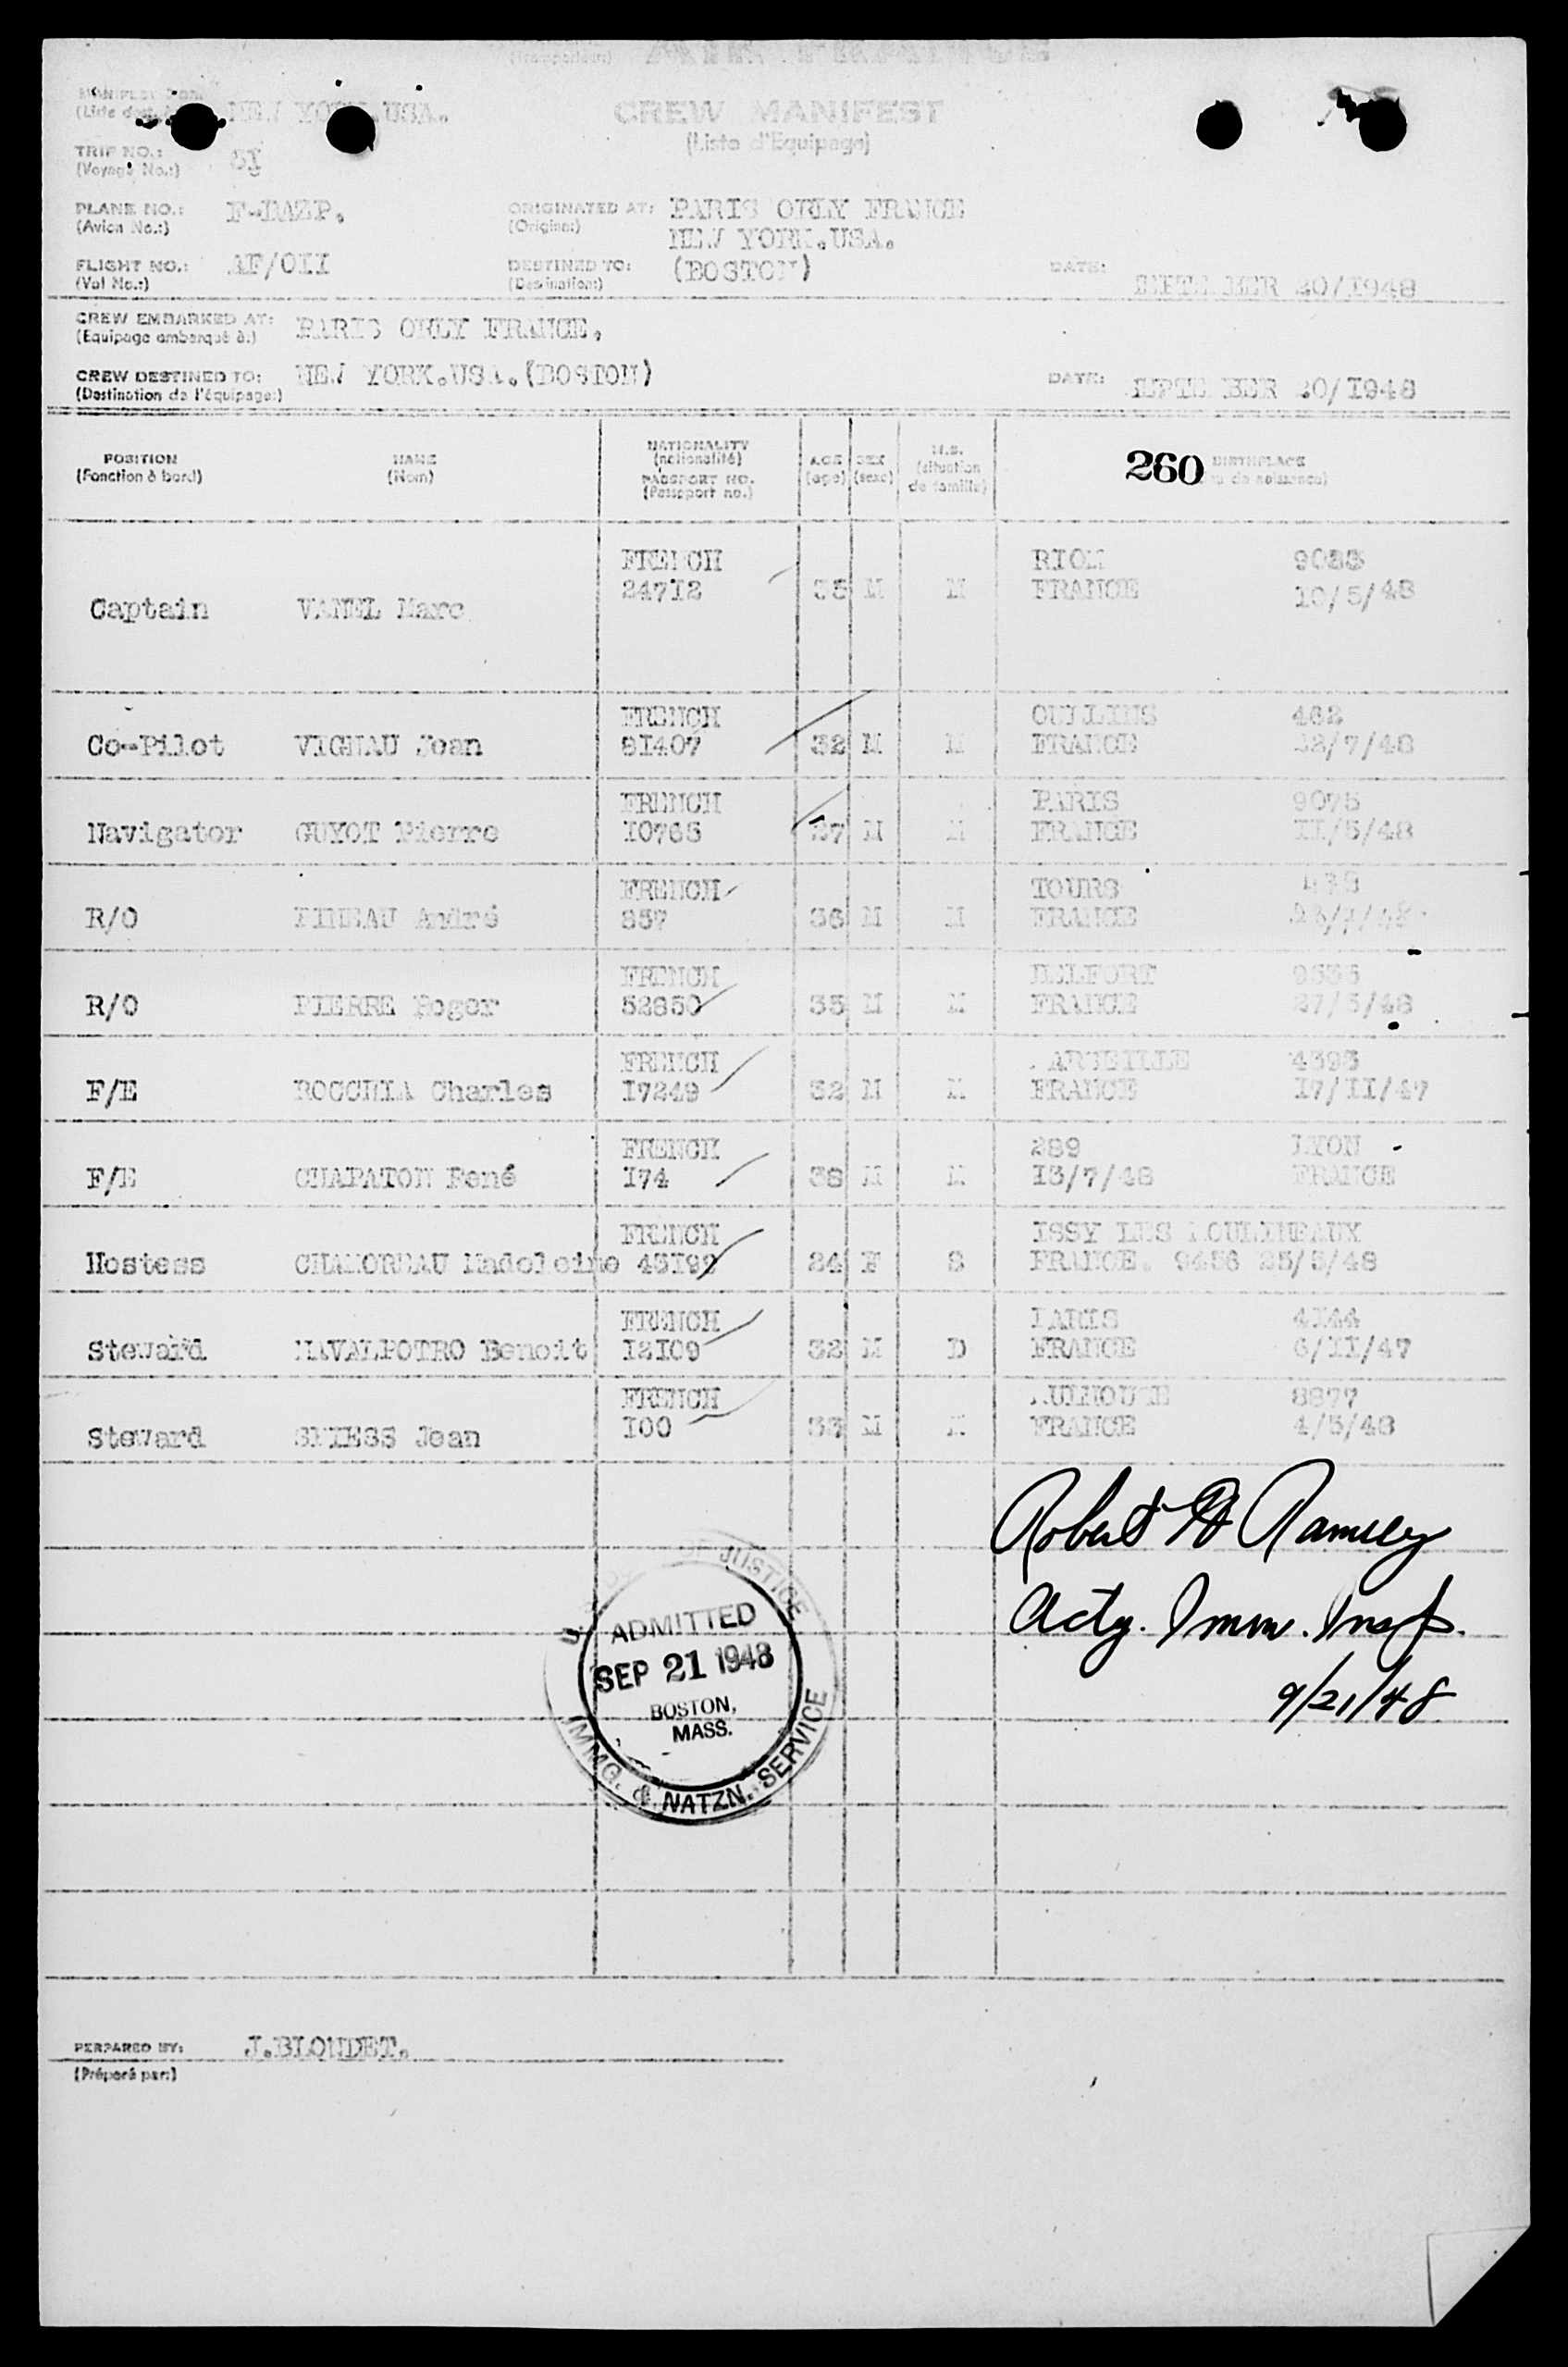 (Transporteur) AIR FRANCE
(Liste NEW YORK USA. CREW MANIFEST
(Liste d'Equipage)
TRIP NO.: 51
(Voyage No.:)
PLANE NO.: ORIGINATED AT: PARIS ORLY FRANCE
(Avion No.:) (Origine:)
NEW YORK.USA.
FLIGHT NO.: AF/OII DESTINED TO: (BOSTON) DATE: SEPTEMBER 20/1948
(Vol No.:) (Destination:)
CREW EMBARKED AT: PARIS ORLY FRANCE.
(Equipage embarqué à:)
CREW DESTINED TO: NEW YORK.USA.(BOSTON) DATE: SEPTEMBER 20/1948
(Destination de l'équipage:)
POSITION NAME NATIONALITY AGE SEX M.S. 260 BIRTHPLACE
(Fonction à bord) (Nom) (nationalité) (age) (sexe) (situation de famille) de naissance)
PASSPORT NO.
(Passeport no.)
FRENCH RIOM
Captain VANEL Marc 24712 35 M M FRANCE 10/5/48
FRENCH OULLINS 462
Co-Pilot VIGNAU Jean 81407 32 M M FRANCE /7/48
FRENCH PARIS 9075
Navigator GUYOT Pierre 10765 37 M M FRANCE II/5/48
FRENCH TOURS
R/O PINEAU André 857 36 M M FRANCE
FRENCH BELFORT
R/O PIERRE Roger 52850 35 M M FRANCE 27/5/48
FRENCH MARSEILLE 4393
F/E ROCCHIA Charles I7249 32 M M FRANCE I7/II/47
FRENCH 289 LYON
F/E CHAPATON René I74 38 M M I3/7/48 FRANCE
FRENCH ISSY LES MOULINEAUX
Hostess CHAMOREAU Madeleine 43I92 24 F S FRANCE. 9456 25/5/48
FRENCH PARIS 4I44
Steward NAVALPOTRO Benoit I2I09 32 M D FRANCE 6/II/47
FRENCH MULHOUSE 8877
Steward SPIESS Jean I00 33 M M FRANCE 4/5/48
Robert H Ramsey
Actg. Imm. Insp.
9/21/48
OF JUSTICE
ADMITTED
SEP 21 1948
BOSTON,
MASS.
IMMG. & NATZN. SERVICE
PERPARED BY: J.BLONDET.
(Préparé par:)